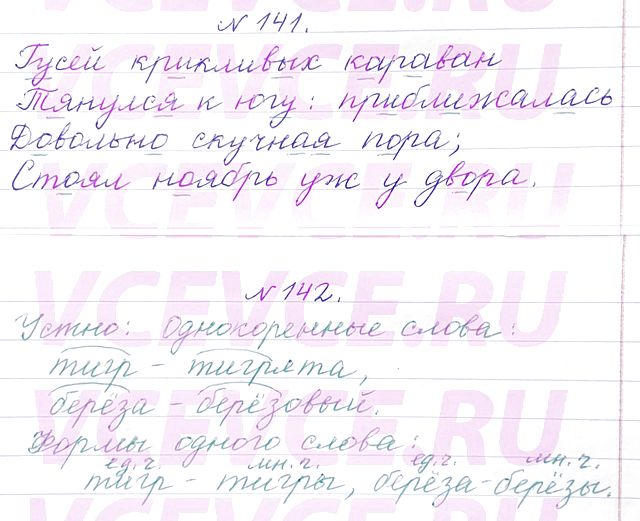 № 141.
Гусей крикливых караван
Тянулся к югу: приближалась
Довольно скучная пора;
Стоял ноябрь уж у двора.
№ 142.
Устно: Однокоренные слова:
тигр – тигрята,
берёза – берёзовый.
Формы одного слова:
ед.ч. мн.ч. ед.ч. мн.ч.
тигр – тигры, берёза – берёзы.
VCEVCE.RU